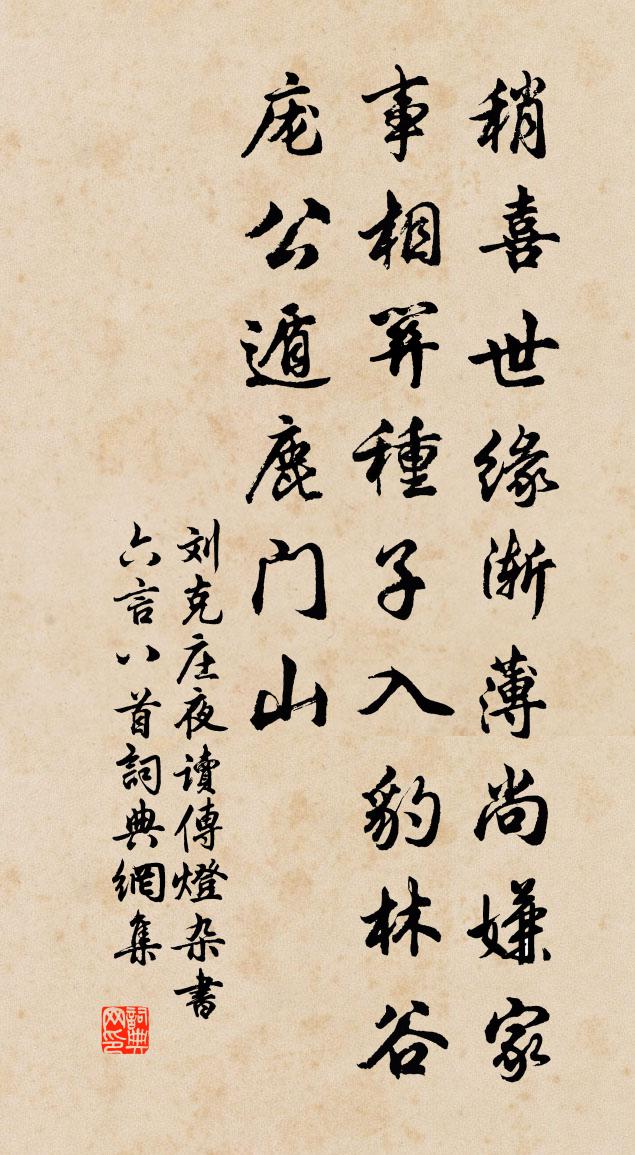 稍喜世缘渐薄尚嫌家
事相关種子入豹林谷
庞公遁鹿门山
刘克庄夜讀傳燈杂書
六言八首詞典網集
詞典
网印